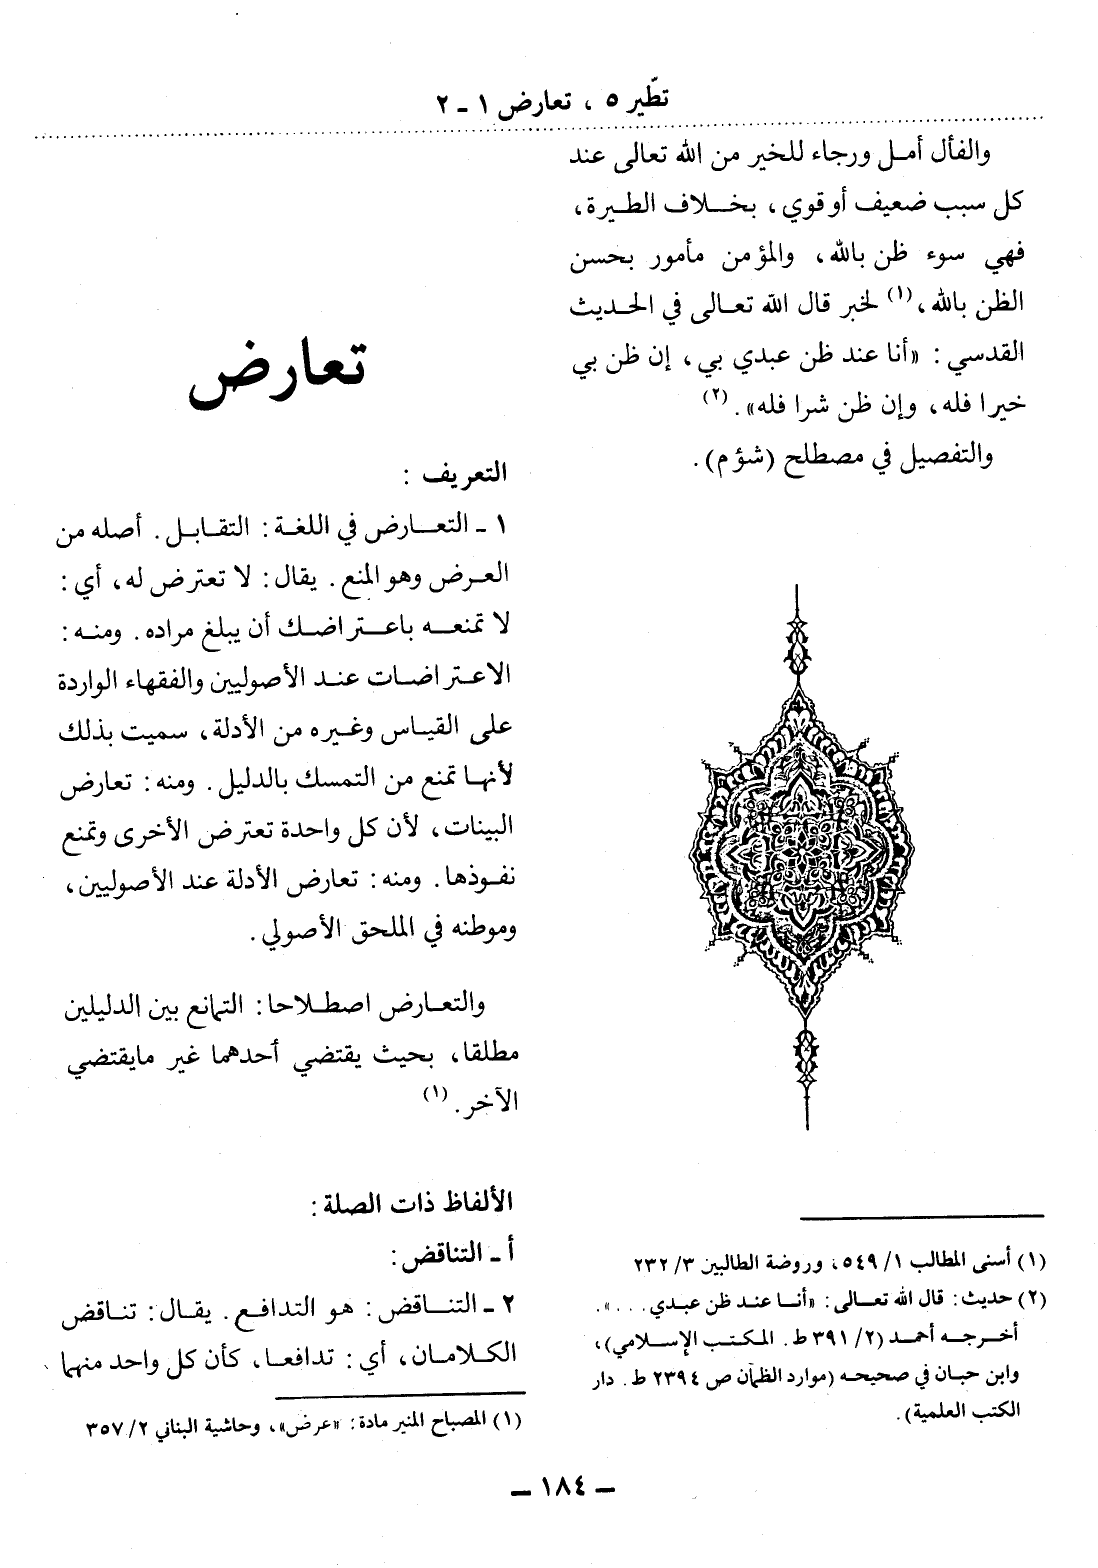 تطّير ٥ ، تعارض ١ - ٢
والفأل أمل ورجاء للخير من الله تعالى عند
كل سبب ضعيف أو قوي ، بخلاف الطيرة ،
فهي سوء ظن بالله ، والمؤمن مأمور بحسن
الظن بالله ،(١) لخبر قال الله تعالى في الحديث
القدسي : «أنا عند ظن عبدي بي ، إن ظن بي
خيرا فله ، وإن ظن شرا فله» .(٢)
والتفصيل في مصطلح (شؤم) .
(١) أسنى المطالب ١/ ٥٤٩ ، وروضة الطالبين ٣/ ٢٣٢
(٢) حديث : قال الله تعالى : «أنا عند ظن عبدي . . . » .
أخرجه أحمد (٢/ ٣٩١ ط . المكتب الإسلامي) ،
وابن حبان في صحيحه (موارد الظمآن ص ٢٣٩٤ ط . دار
الكتب العلمية) .
تعارض
التعريف :
١ - التعارض في اللغة : التقابل . أصله من
العرض وهو المنع . يقال : لا تعترض له ، أي :
لا تمنعه باعتراضك أن يبلغ مراده . ومنه :
الاعتراضات عند الأصوليين والفقهاء الواردة
على القياس وغيره من الأدلة ، سميت بذلك
لأنها تمنع من التمسك بالدليل . ومنه : تعارض
البينات ، لأن كل واحدة تعترض الأخرى وتمنع
نفوذها . ومنه : تعارض الأدلة عند الأصوليين ،
وموطنه في الملحق الأصولي .
والتعارض اصطلاحا : التمانع بين الدليلين
مطلقا ، بحيث يقتضي أحدهما غير مايقتضي
الآخر .(١)
الألفاظ ذات الصلة :
أ - التناقض :
٢ - التناقض : هو التدافع . يقال : تناقض
الكلامان ، أي : تدافعا ، كأن كل واحد منهما
(١) المصباح المنير مادة : «عرض» ، وحاشية البناني ٢/ ٣٥٧
– ١٨٤ –